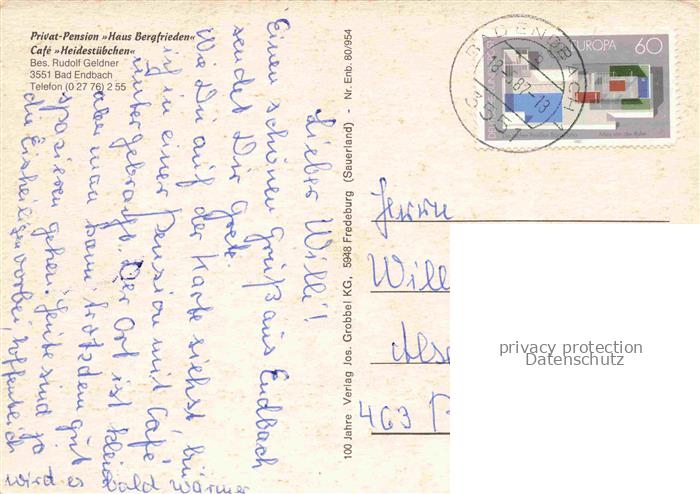 Privat-Pension »Haus Bergfrieden«
Café »Heidestübchen«
Bes. Rudolf Geldner
3551 Bad Endbach
Telefon (0 27 76) 2 55
Lieber Willi!
Einen schönen Gruß aus Endbach
sendet Dir Grete.
Wie Du auf der Karte siehst bin
ich in einer Pension mit Café
untergebracht. Der Ort ist klein
aber man kann trotzdem gut
spazieren gehen. Heute sind ja
die Eisheiligen vorbei, hoffentlich
wird es bald wärmer
100 Jahre Verlag Jos. Grobbel KG, 5948 Fredeburg (Sauerland) - Nr. Enb. 80/954
BAD ENDBACH
18.5.87-13
3551
EUROPA 60
Herrn
Will
463
privacy protection
Datenschutz